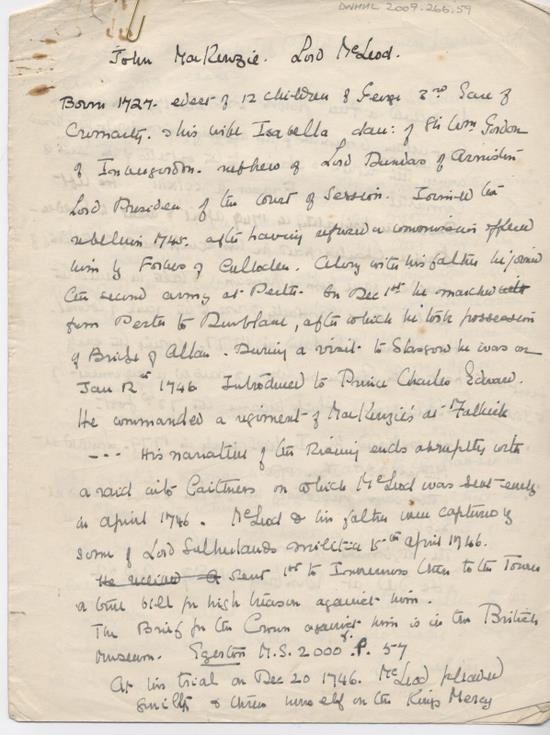 DNHHL 2009.266.59
John MacKenzie. Lord McLeod.
Born 1727. eldest of 12 children of George 3rd Earl of
Cromarty. & his wife Isabella, dau: of Sir Wm. Gordon
of Invergordon. nephew of Lord Dundas of Arniston
Lord President of the Court of Session. Joined the
rebellion 1745. after having refused a commission offered
him by Forbes of Culloden. Along with his father he joined
the second army at Perth. On Dec 1st he marched
from Perth to Dunblane, after which he took possession
of Bridge of Allan. During a visit to Glasgow he was on
Jan 12th 1746 Introduced to Prince Charles Edward.
He commanded a regiment of MacKenzie's at Falkirk
--- His narrative of the Rising ends abruptly with
a raid into Caithness on which McLeod was sent early
in april 1746. McLeod & his father were captured by
some of Lord Sutherlands militia 15th april 1746.
He received a sent 1st to Inverness then to the Tower
a true bill for high treason against him.
The Brief for the Crown against him is in the British
Museum. Egerton M.S. 2000. P. 57
At his trial on Dec 20 1746. McLeod pleaded
guilty & threw himself on the Kings Mercy